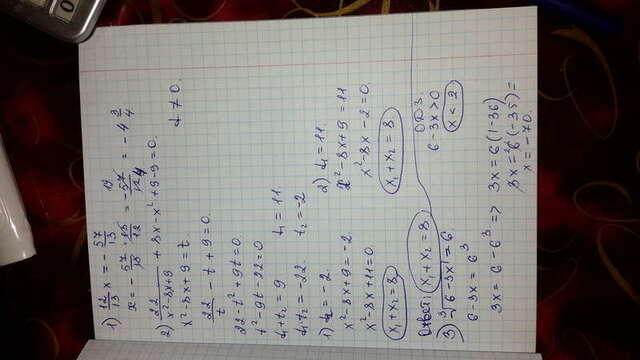 1) 12/13 x = - 57/13 19
x = - 57/13 · 13/12 = - 57/12 4 = - 4 3/4
2) 22/x²-8x+9 + 8x - x² + 9 - 9 = 0.
x² - 8x + 9 = t. t ≠ 0.
22/t - t + 9 = 0.
22 - t² + 9t = 0
t² - 9t - 22 = 0
t₁ + t₂ = 9 t₁ = 11
t₁ t₂ = -22. t₂ = -2
1) t₁ = -2. 2) t₁ = 11.
x² - 8x + 9 = -2 x² - 8x + 9 = 11
x² - 8x + 11 = 0. x² - 8x - 2 = 0.
x₁ + x₂ = 8 x₁ + x₂ = 8
Ответ: x₁ + x₂ = 8 ОДЗ.
3) ³√6 - 3x = 6 6 - 3x > 0
6 - 3x = 6³ x < 2
3x = 6 - 6³ => 3x = 6(1 - 36)
3x = 6(-35) =
x = -70.